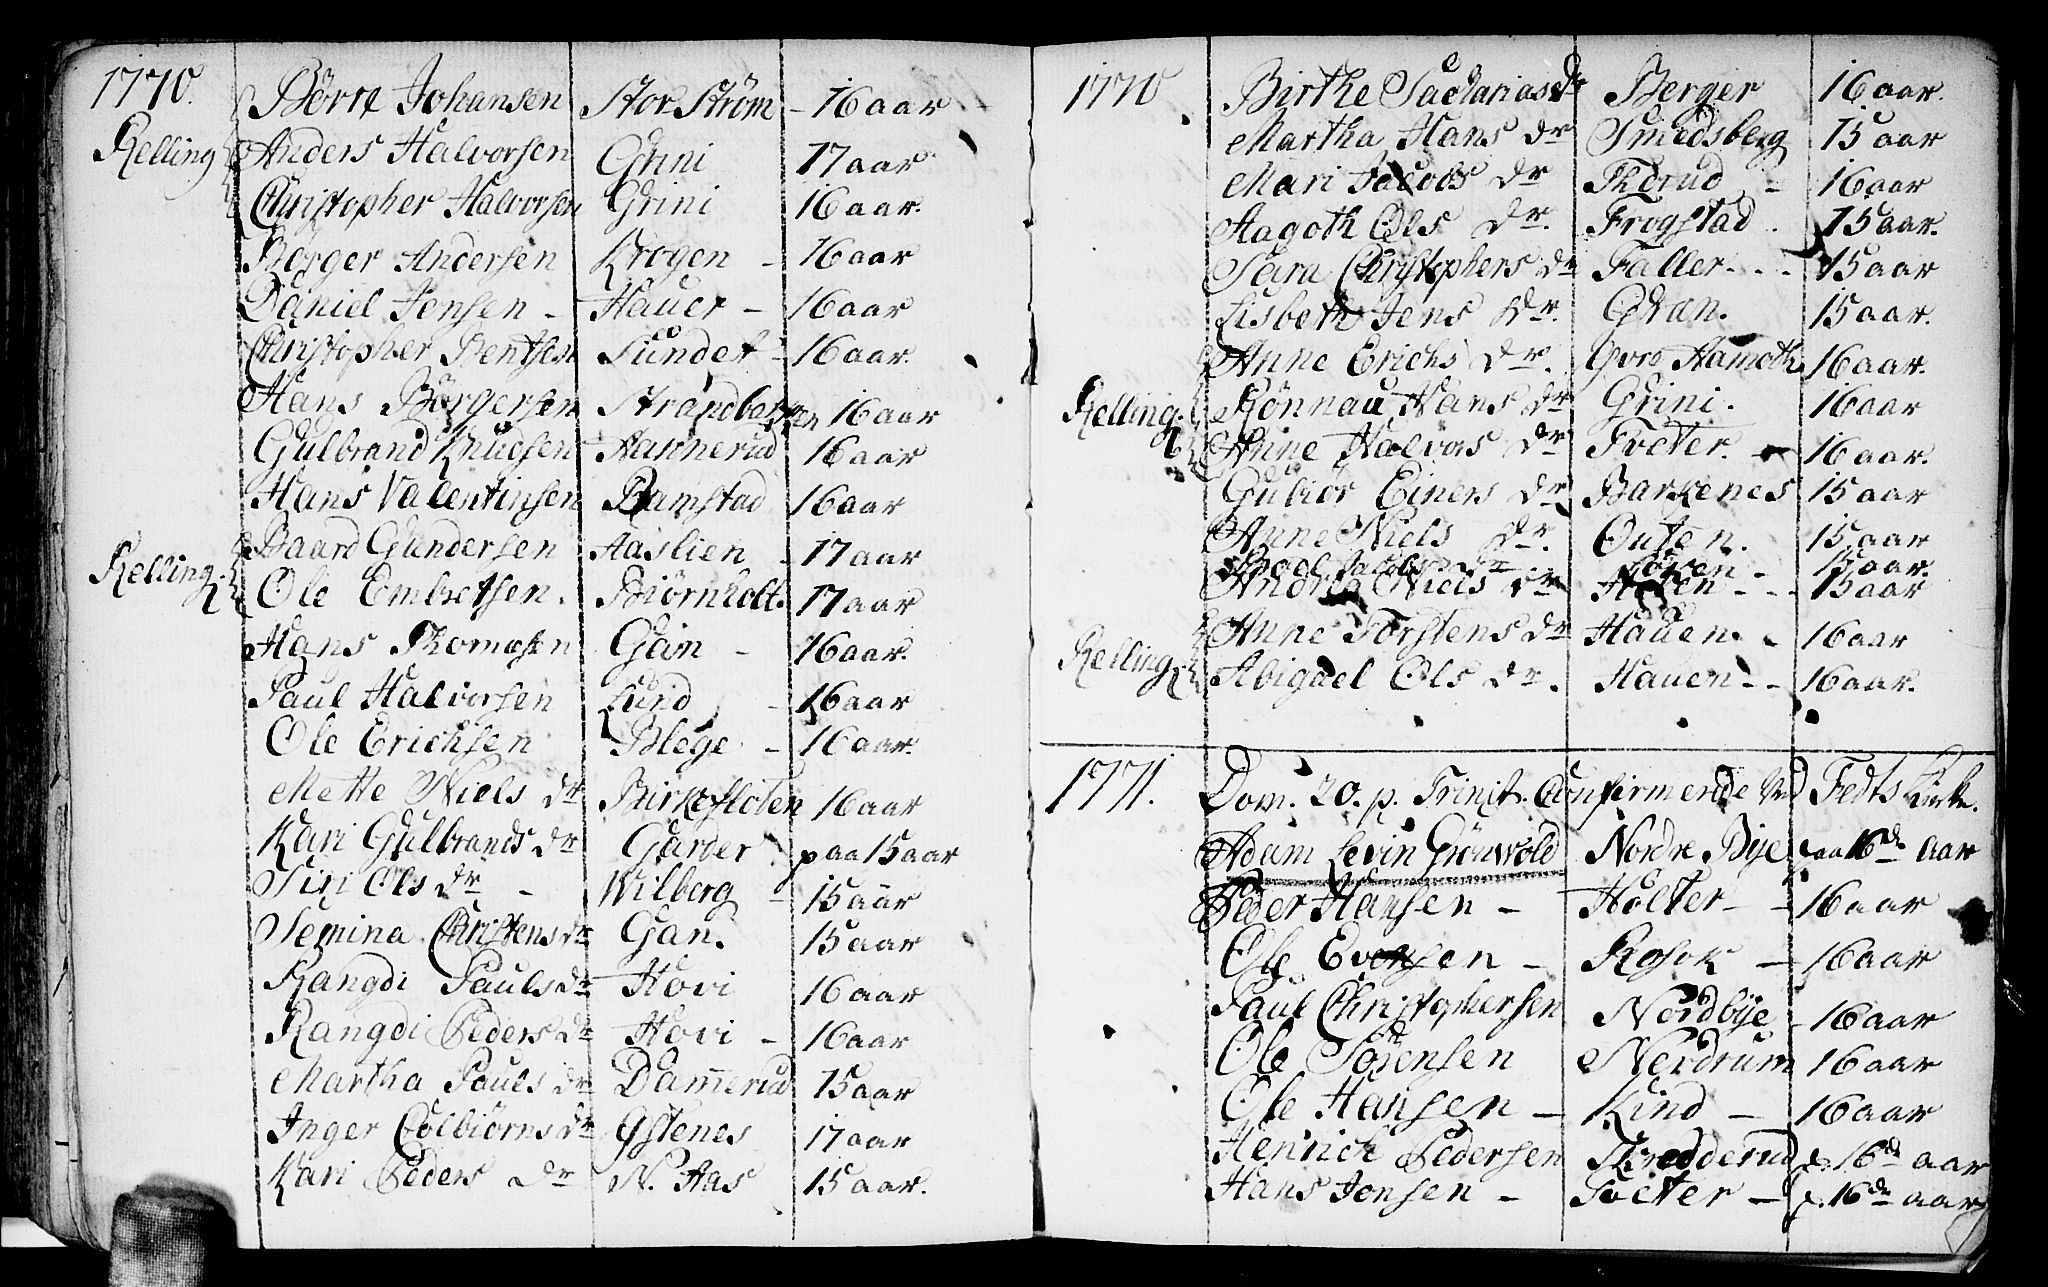 1770.
Börre Johansen Stor Ström - 16 aar
Relling Anders Halvorsen Grini 17 aar
Christopher Halvorsen Grini 16 aar.
Börger Andersen Krogen - 16 aar
Daniel Jensen - Hauer - 16 aar
Christopher Bentsen Sundet - 16 aar.
Hans Börgersen Strandbakken 16 aar
Gulbrand Knudsen Hannerud 16 aar
Hans Valentinsen Ramstad 16 aar
Baard Gundersen Aaslien - 17 aar
Relling. Ole Embretsen. Biörnholt. 17 aar
Hans Thomæsen Gan - 16 aar.
Paul Halvorsen Lund - 16 aar
Ole Erichsen Blege - 16 aar.
Mette Niels dr Birkefloten 16 aar
Kari Gulbrands dr Garder. paa 15 aar
Siri Ols dr - Wilberg - 15 aar
Semina Christens dr Gan. 15 aar
Rangdi Pauls dr Hovi 16 aar
Rangdi Peders dr Hovi - 16 aar
Martha Pauls dr Dam̅erud 15 aar
Inger Colbiörns dr Ystenes 17 aar
Kari Peders dr N. Aas 15 aar.
1770
Birthe Sacharias dr Berger 16 aar.
Martha Hans dr Smedsberg 15 aar
Mari Jacobs dr Thorud - 16 aar
Aagoth Ols dr. Frogstad. 15 aar.
Sara Christophers dr Faller - - - 15 aar
Lisbeth Jens dr. Gran. 15 aar.
Anne Erichs dr. Hameth 16 aar.
Relling. Rönnau Hans dr Grini. 16 aar
Anne Halvors dr Tveter. - 16 aar.
Gubiör Einers dr Barkenes 15 aar
Anne Niels dr. Outen. 15 aar
Jacobs dr 15 aar.
Andrea Niels dr - - - 15 aar
Anne Torstens dr Hauen. - 16 aar
Relling. Abigael Ols dr. Hauen - - 16 aar.
1771. Dom. 20. p. Trinit. Confirmerede ved Fedts Kirke.
Adam Levin Grönvold Nordre Bye paa 16de aar
Peder Hansen - Holter - - 16 aar
Ole Evensen - Rosok - 16 aar
Paul Christophersen Nordbye - 16 aar
Ole Sörensen Nerdrum 16 aar
Ole Hansen - Kind - 16 aar
Henrich Pedersen Thredderud p. 16de aar
Hans Jonsen - Tveter - p. 16de aar